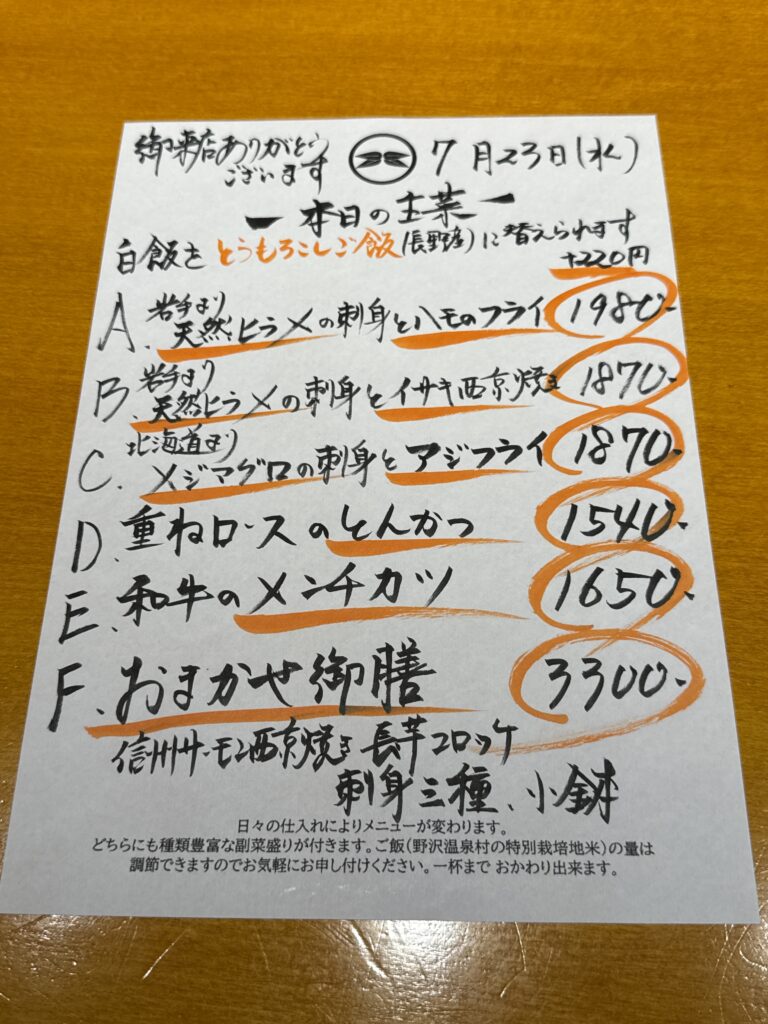 御来店ありがとう
ございます
7月23日(水)
ー本日の主菜ー
白飯をとうもろこしご飯(長野産)に替えられます
+220円
A. 岩手より
天然ヒラメの刺身とハモのフライ 1980-
B. 岩手より
天然ヒラメの刺身とイサキ西京焼き 1870-
C. 北海道より
メジマグロの刺身とアジフライ 1870-
D. 重ねロースのとんかつ 1540-
E. 和牛のメンチカツ 1650-
F. おまかせ御膳 3300-
信州サーモン西京焼き 長芋コロッケ
刺身三種、小鉢
日々の仕入れによりメニューが変わります。
どちらにも種類豊富な副菜盛りが付きます。ご飯(野沢温泉村の特別栽培地米)の量は
調節できますのでお気軽にお申し付けください。一杯まで おかわり出来ます。